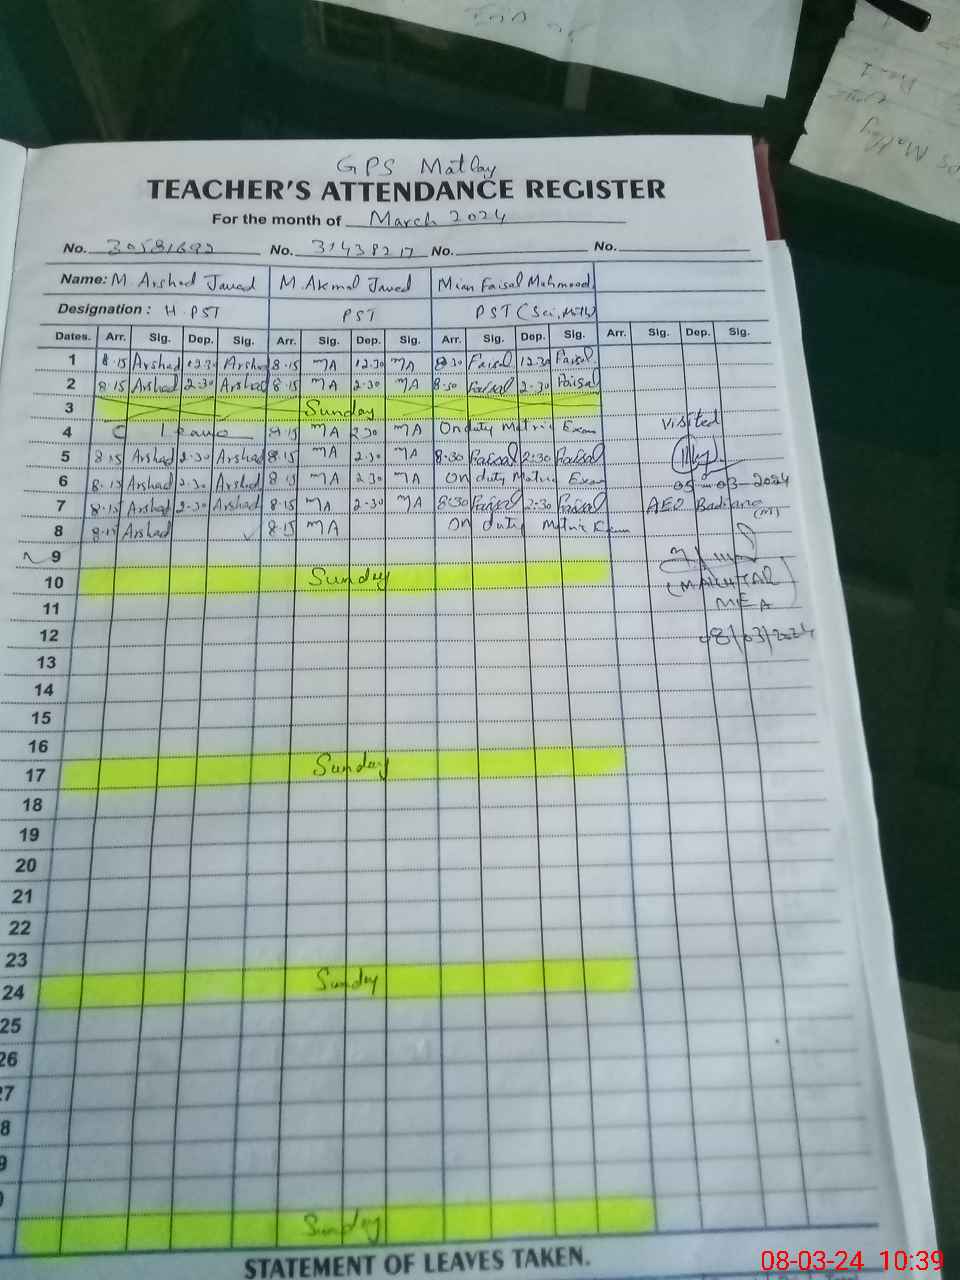 GPS Matlay
TEACHER'S ATTENDANCE REGISTER
For the month of March 2024
No. 30581692 No. 31438217 No. No.
Name: M. Arshad Javed M. Akmal Javed Mian Faisal Mahmood
Designation : H.PST PST PST (Sci, Math)
Dates. Arr. Sig. Dep. Sig. Arr. Sig. Dep. Sig. Arr. Sig. Dep. Sig. Arr. Sig. Dep. Sig.
1 8.15 Arshad 12.30 Arshad 8.15 MA 12.30 MA 8:30 Faisal 12.30 Faisal
2 8.15 Arshad 2.30 Arshad 8.15 MA 2.30 MA 8:30 Faisal 2:30 Faisal
3 Sunday
4 C Leave 8.15 MA 2.30 MA On duty Matric Exam visited
5 8.15 Arshad 2.30 Arshad 8.15 MA 2.30 MA 8:30 Faisal 2:30 Faisal
6 8.15 Arshad 2.30 Arshad 8.15 MA 2.30 MA On duty Matric Exam 05-03-2024
7 8.15 Arshad 2.30 Arshad 8.15 MA 2.30 MA 8:30 Faisal 2:30 Faisal AEO Badiana (M)
8 8.15 Arshad 8.15 MA On duty Matric Exam
9
10 Sunday
11 MEA
12 08/03/2024
13
14
15
16
17 Sunday
18
19
20
21
22
23
24 Sunday
25
26
27
8
9
0
Sunday
STATEMENT OF LEAVES TAKEN.
08-03-24 10:39